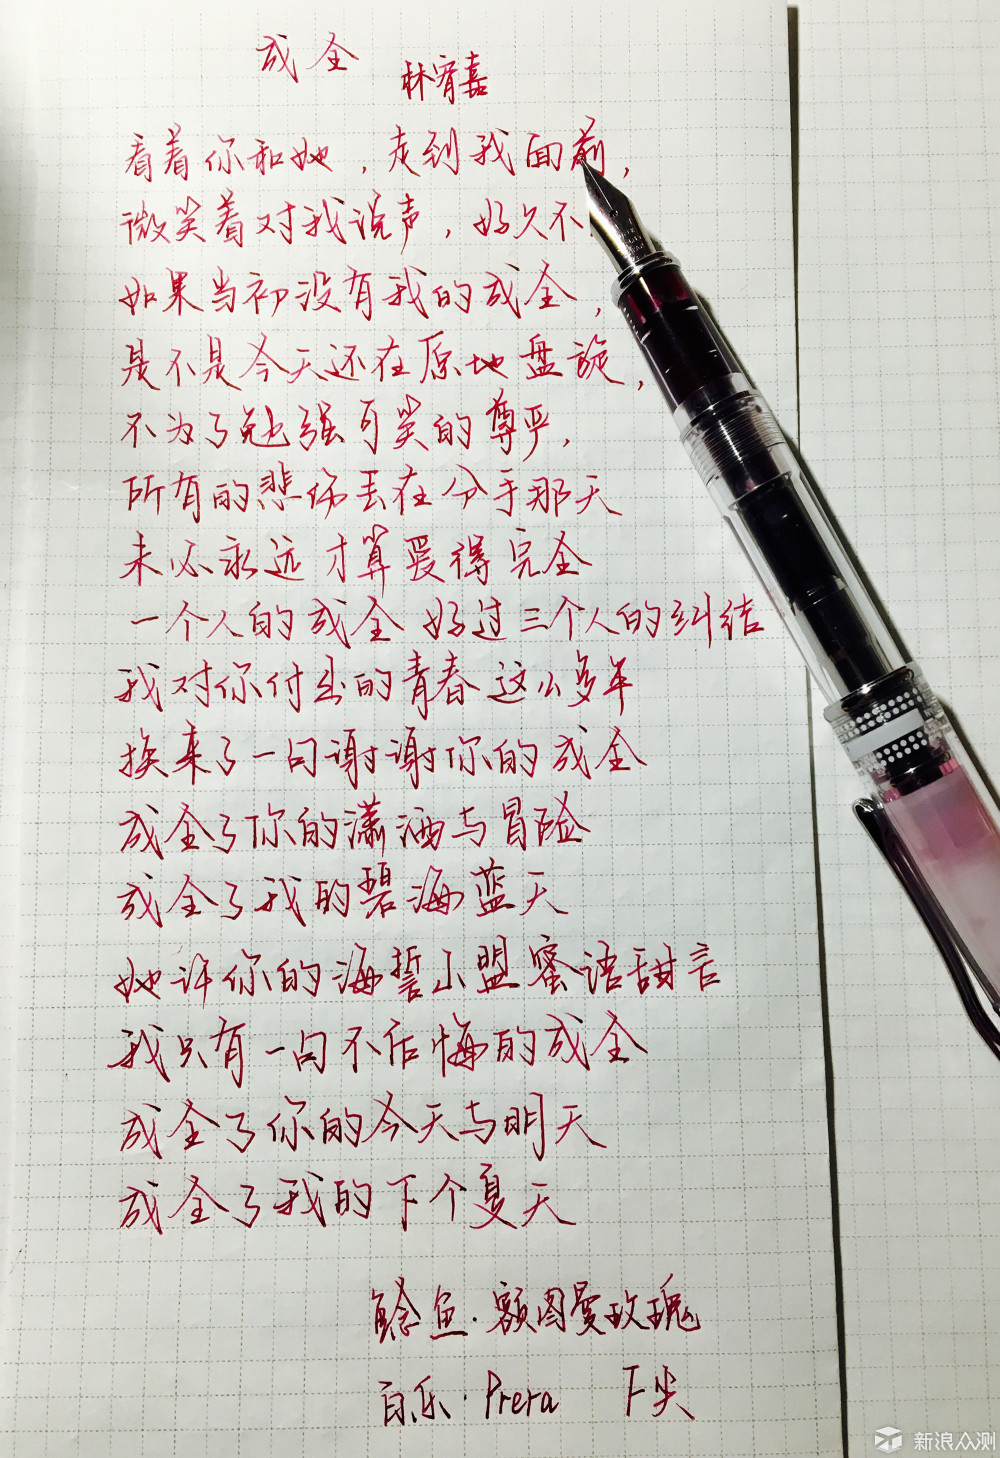 成全
林宥嘉
看着你和她，走到我面前，
微笑着对我说声，好久不
如果当初没有我的成全，
是不是今天还在原地盘旋，
不为了勉强可笑的尊严，
所有的悲伤丢在分手那天
未必永远才算爱得完全
一个人的成全 好过三个人的纠结
我对你付出的青春这么多年
换来了一句谢谢你的成全
成全了你的潇洒与冒险
成全了我的碧海蓝天
她许你的海誓山盟蜜语甜言
我只有一句不后悔的成全
成全了你的今天与明天
成全了我的下个夏天
鲶鱼·额图曼玫瑰
百乐·Prera F尖
新浪众测